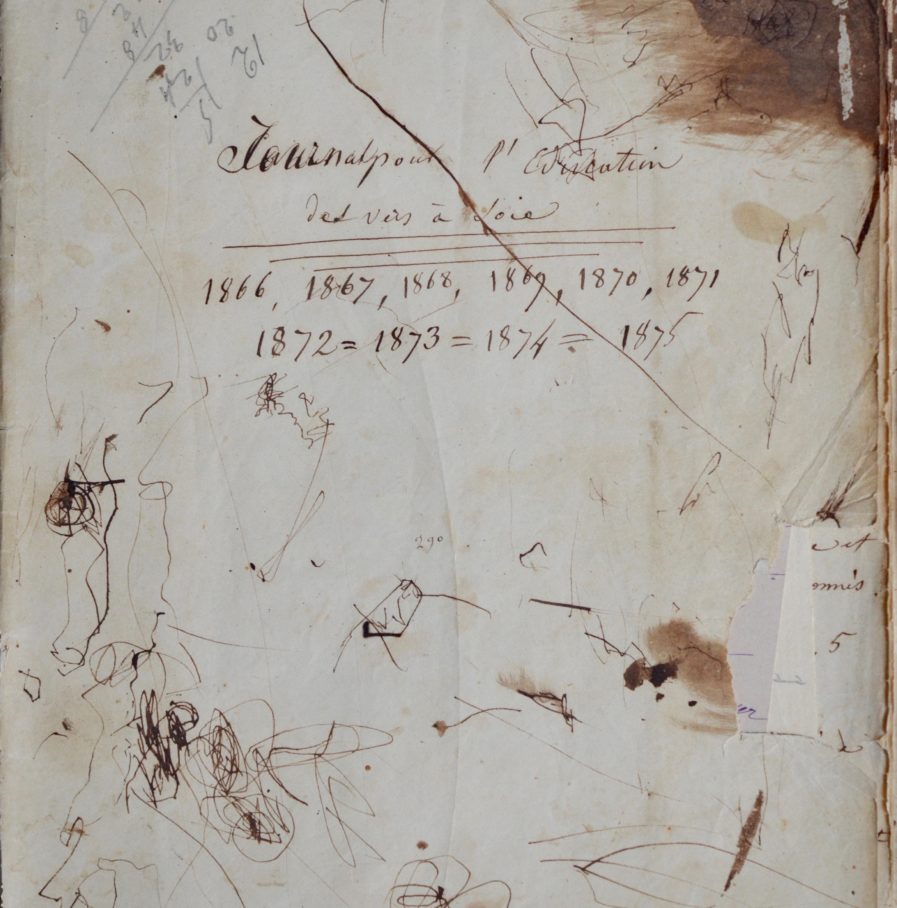 Journal pour l'Education
des vers à soie
1866, 1867, 1868, 1869, 1870, 1871
1872 = 1873 = 1874 = 1875
290
et
onnés
5
20
12
48
24